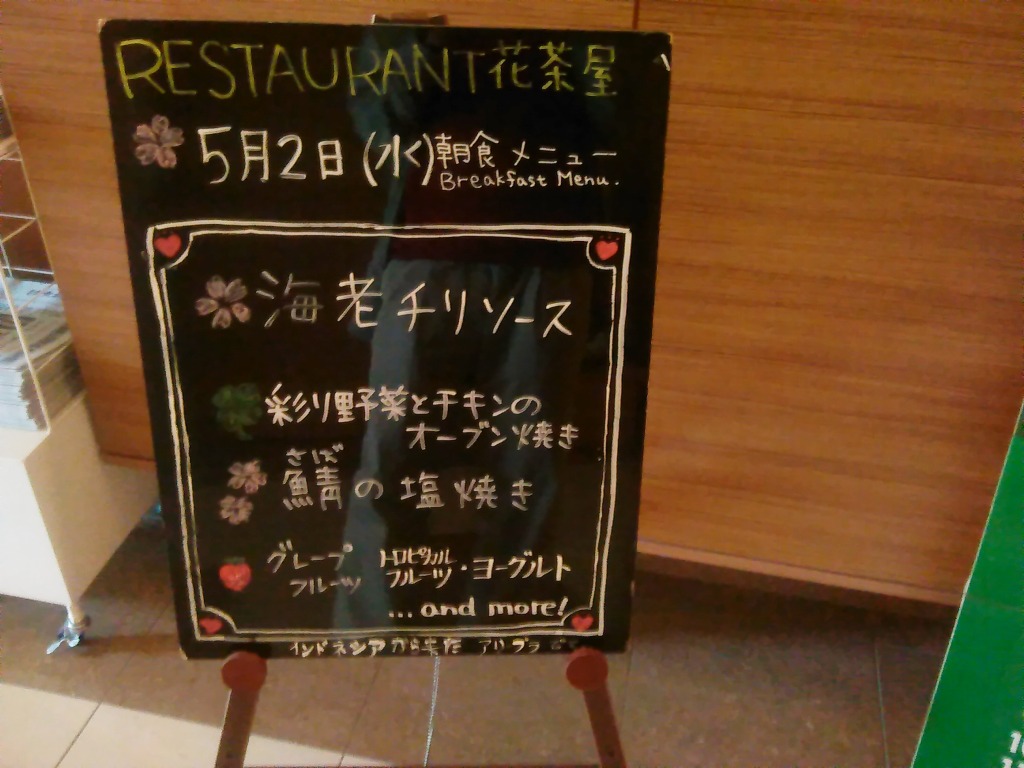 RESTAURANT花茶屋
5月2日(水)朝食メニュー
Breakfast Menu.
海老チリソース
彩り野菜とチキンの
オーブン焼き
さば
鯖の塩焼き
グレープ
フルーツ
トロピカル
フルーツ・ヨーグルト
...and more!
インドネシアから来た アリ